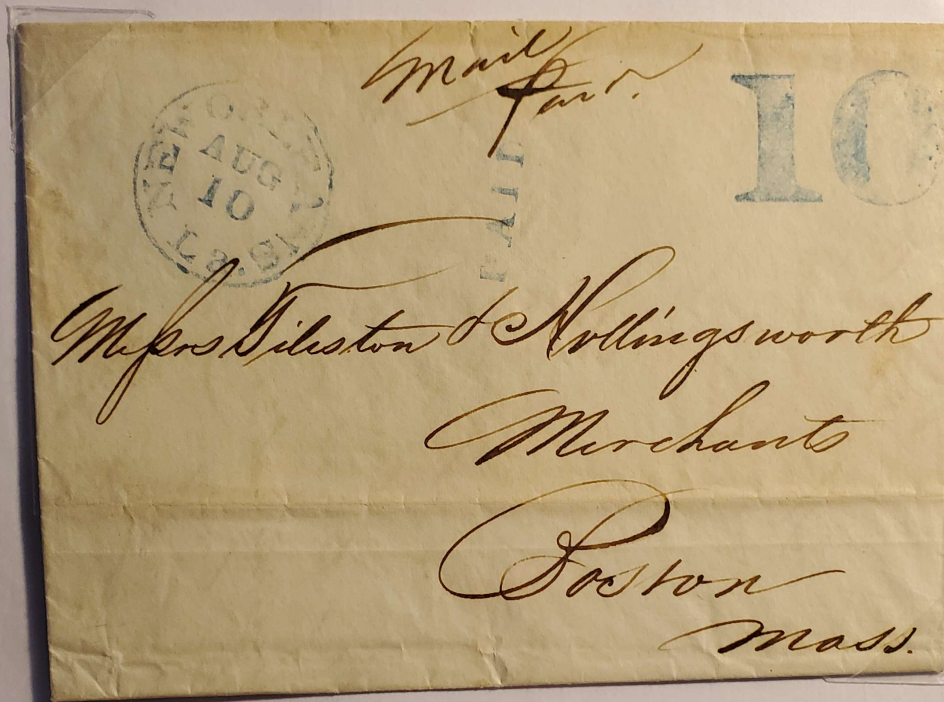 Mail
Paid.
NEW ORLEANS La.
AUG
10
PAID
10
Messrs Tileston & Hollingsworth
Merchants
Boston
Mass.